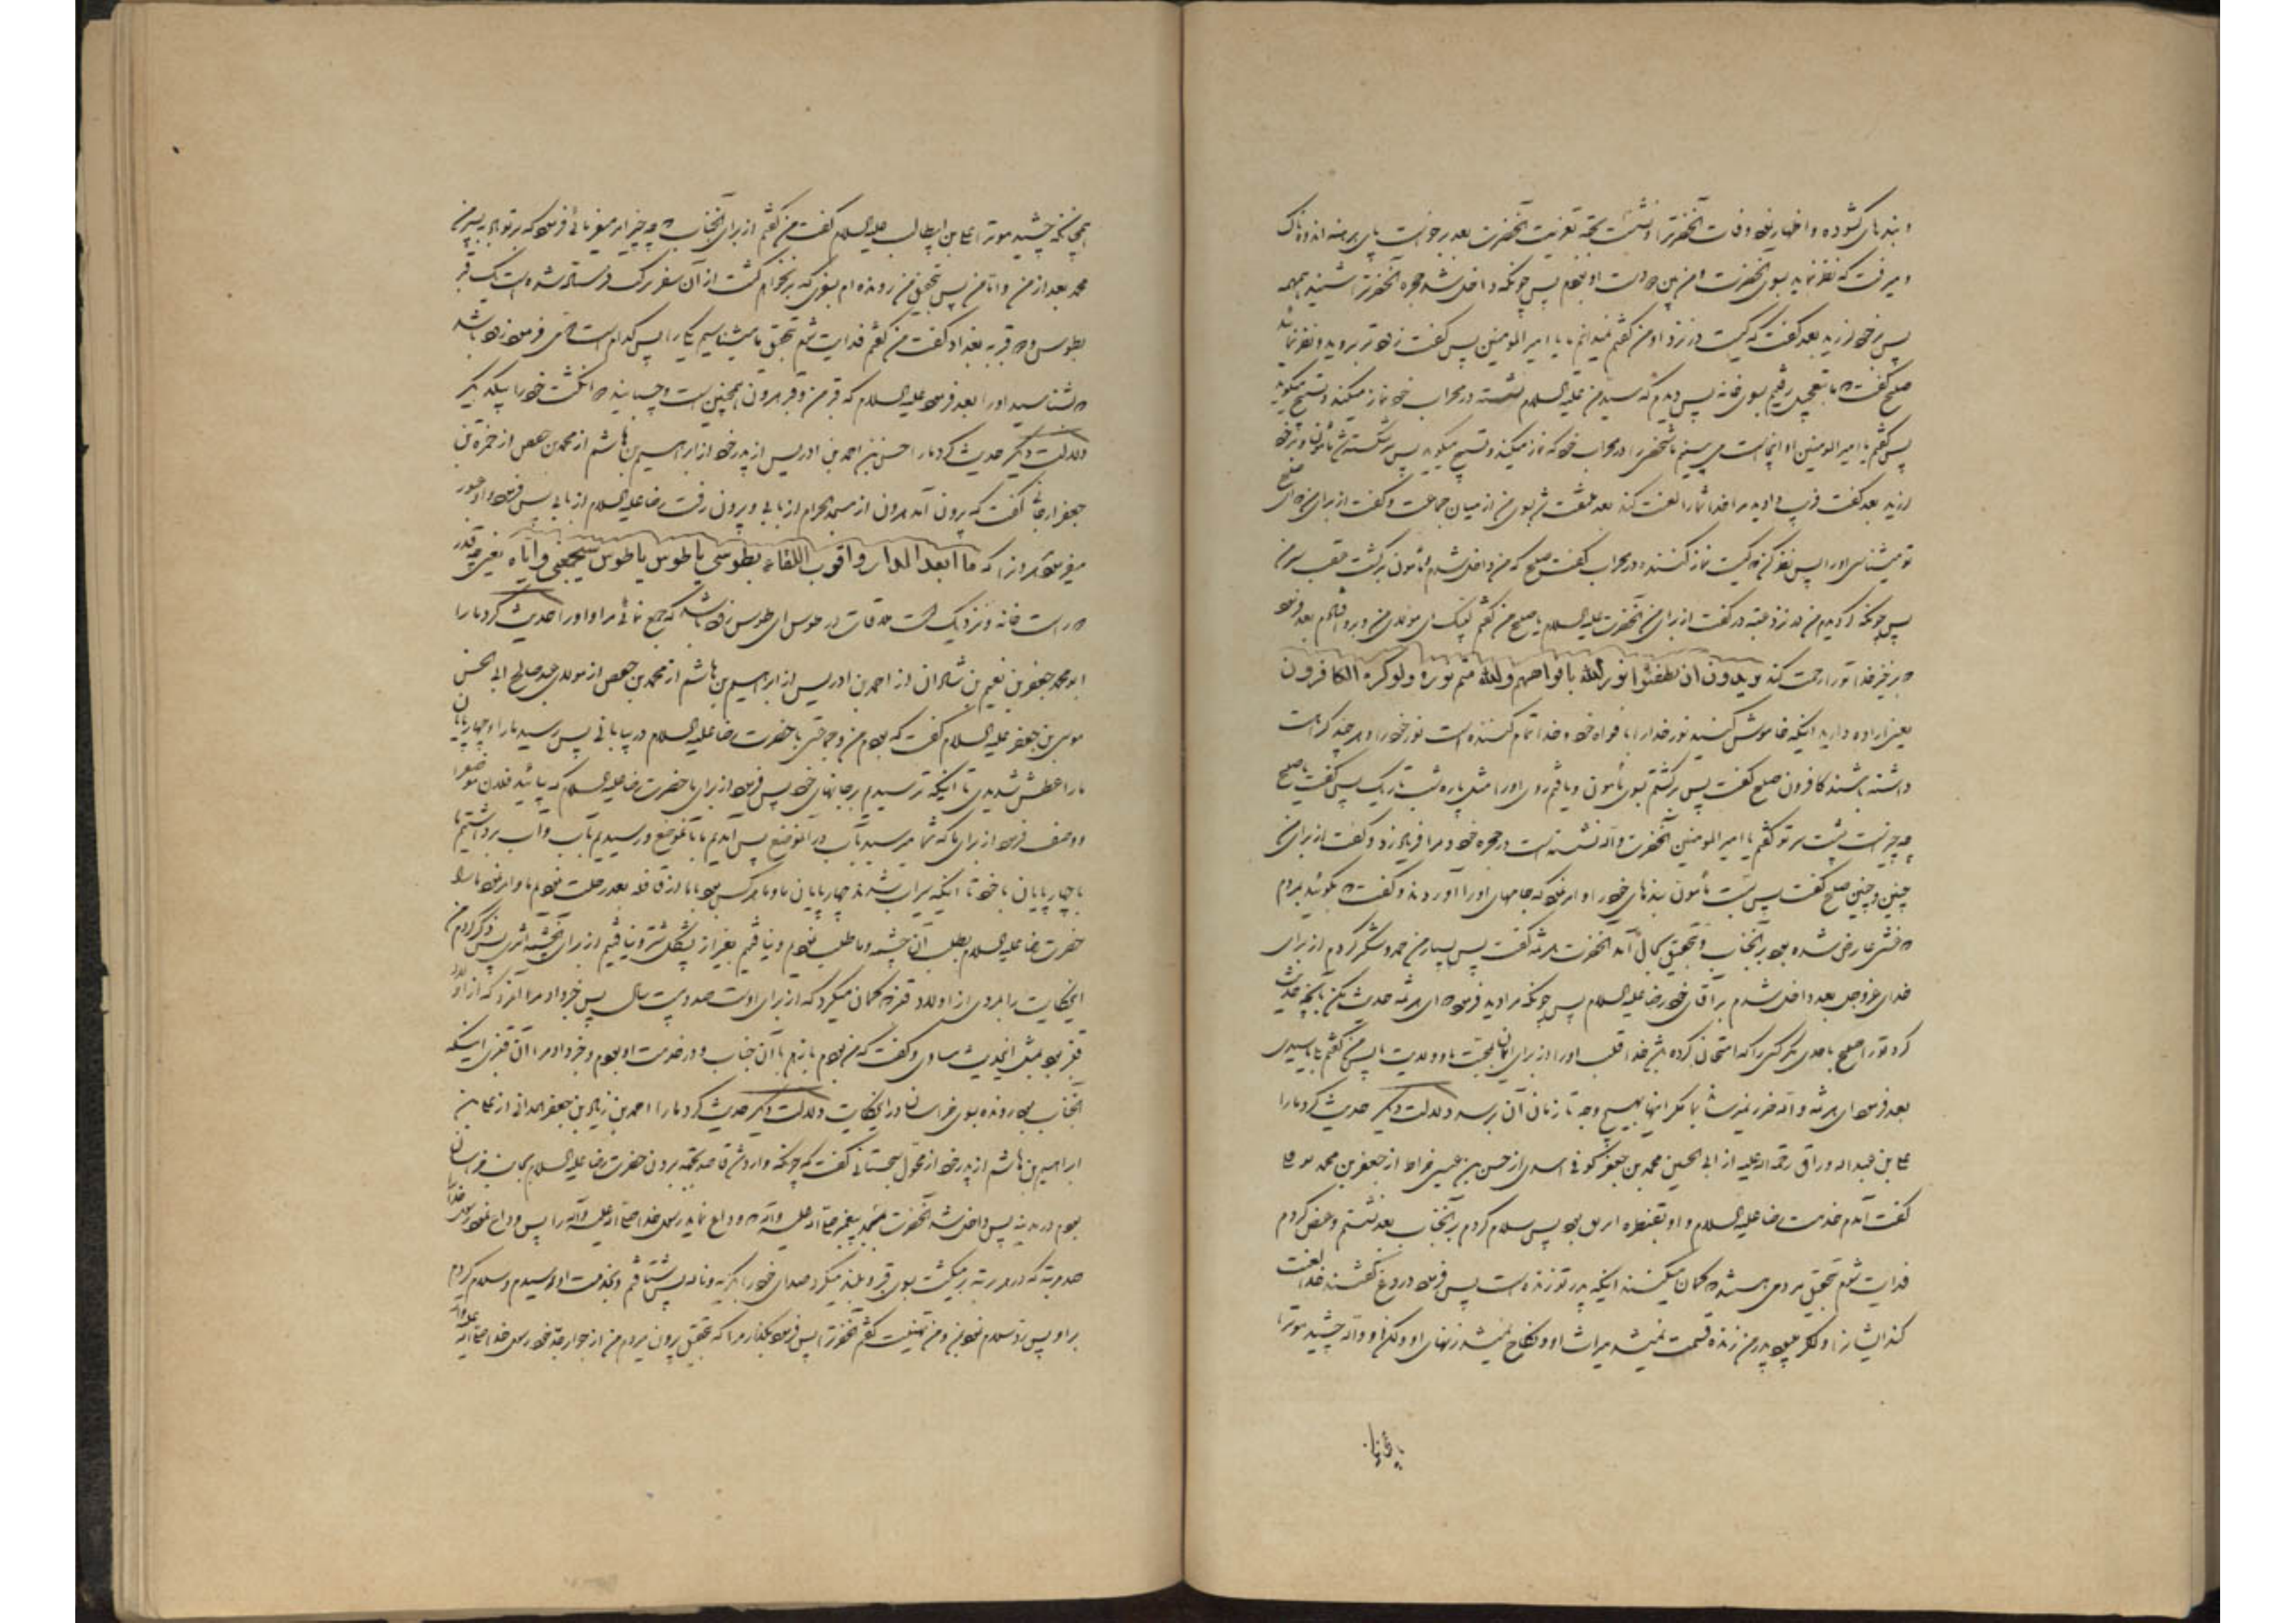 و بندهای گشوده و اظهار نمود وفات آنحضرترا و نشست بجهة تعزیت آنحضرت بعد برخواست پای برهنه اندوهناک
و میرفت که نظر نماید بسوی آنحضرت و من پیش دست او بودم پس چونکه داخل شد حجره آنحضرترا شنید همهمه
پس برخود لرزید بعد گفت که کیست در نزد او من گفتم نمیدانم ما یا امیر المومنین پس گفت زود تر بروید و نظر نمائید
صبیح گفت که ما بتعجیل رفتیم بسوی خانه پس دیدم که سید من علیه السلام نشسته در محراب خود نماز میکند و تسبیح میگوید
پس گفتم یا امیر المومنین او اینجا است می بینیم ما شخصی را در محراب خود که نماز میکند و تسبیح میگوید پس شکسته شد مأمون و برخود
لرزید بعد گفت فریب دادید مرا خدا شما را لعنت کند بعد ملتفت شد بسوی من از میان جماعت و گفت از برای من ای صبیح
تو میشناسی او را پس نظر کن که کیست نماز کننده در محراب گفت صبیح که من داخل شدم و مأمون برگشت عقب سر من
پس چونکه گردیدم من در نزد عتبه در گفت از برای من آنحضرت علیه السلام یا صبیح من گفتم لبیک ای مولای من و برو افتادم بعد فرمود
که برخیز خدا تو را رحمت کند یریدون ان یطفئوا نور الله بافواههم والله متم نوره ولو کره الکافرون
یعنی اراده دارید اینکه خاموش کنید نور خدا را بافواه خود و خدا تمام کننده است نور خود را و هر چند کراهت
داشته باشند کافرون صبیح گفت پس برگشتم بسوی مأمون و یافتم روی او را مثل پاره شب تاریک پس گفت یا صبیح
چه چیز است پشت سر تو گفتم یا امیر المومنین آنحضرت والله نشسته است در حجره خود و مرا فریاد زد و گفت از برای من
چنین و چنین صبیح گفت پس بست مأمون بندهای خود را و امر نمود که جامهای او را آوردند و گفت که بگوئید بمردم
که غشی عارض شده بود بر آنجناب و بتحقیق بحال آمد آنحضرت هرثمه گفت پس بسیار من حمد و شکر کردم از برای
خدای عزوجل بعد داخل شدم بر آقای خود رضا علیه السلام پس چونکه مرا دید فرمود ای هرثمه حدیث مکن بآنچه حدیث
کرد تو را صبیح باحدی مگر کسی را که امتحان کرده باشد خدا قلب او را از برای ایمان بمحبت ما و ولایت ما پس من گفتم بلی یا سیدی
بعد فرمود ای هرثمه والله ضرر نمیرساند بما مکر اینها بهیچ وجه تا زمان آن برسد دلالت دیگر حدیث کرد ما را
علی بن عبد الله وراق رحمه الله علیه از ابی الحسین محمد بن جعفر کوفی اسدی از حسن بن عیسی خراط از جعفر بن محمد نوفلی
گفت آمدم خدمت رضا علیه السلام و او بقنطره اربل بود پس سلام کردم بر آنجناب بعد نشستم و عرض کردم
فدایت شوم بتحقیق مردمی هستند که گمان میکنند اینکه پدر تو زنده است پس فرمود دروغ گفتند خدا لعنت
کند ایشانرا و اگر میبود پدر من زنده قسمت نمیشد میراث او و نکاح نمیشد زنهای او ولکن او والله چشید موترا
همچنانکه چشید موترا علی بن ابیطالب علیه السلام گفت من گفتم از برای آنجناب که چه چیز امر میفرمائی فرمود که بر تو باد به پسر من
محمد بعد از من و اما من پس بتحقیق من رونده ام بسوی که برنخواهم گشت از آن سفر بزرگ است یک قبر
بطوس و دو قبر به بغداد گفت من گفتم فدایت شوم بتحقیق ما میشناسیم یکی را پس کدام است دومی فرمود زود باشد
که بشناسید او را بعد فرمود علیه السلام که قبر من و قبر هرون همچنین است و چسبانید دو انگشت خود را بیکدیگر
دلالت دیگر حدیث کرد ما را حسن بن احمد بن ادریس از پدر خود از ابراهیم بن هاشم از محمد بن حفص از حمزه بن
جعفر ارجانی گفت که بیرون آمد هرون از مسجد الحرام از بابی و بیرون رفت رضا علیه السلام از بابی پس فرمود
میفرمود که ما ابعد الدار واقرب اللقاء بطوس یا طوس یا طوس ستجمعنی وایاه یعنی چه قدر
دور است خانه و نزدیک است ملاقات در طوس ای طوس زود باشد که جمع نمائی مرا و او را حدیث کرد ما را
ابو محمد جعفر بن نعیم بن شاذان از احمد بن ادریس از ابراهیم بن هاشم از محمد بن حفص از مولای عبد صالح ابی الحسن
موسی بن جعفر علیه السلام گفت که بودم من و جماعتی با حضرت رضا علیه السلام در بیابانی پس رسید ما را و چهارپایان
ما را عطش شدیدی تا اینکه ترسیدیم بر جانهای خود پس فرمود از برای ما حضرت رضا علیه السلام که بیائید فلان موضع را
و وصف فرمود از برای ما که شما میرسید بآب در آنموضع پس آمدیم ما بآنموضع و رسیدیم بآب و آب برداشتیم ما
با چهارپایان ما خود تا اینکه سیراب شدند چهارپایان ما و ما و هر کس بود با ما از قافله بعد رحلت نمودیم ما و امر نمود ما را
حضرت رضا علیه السلام بطلب آن چشمه و ما طلب نمودیم و نیافتیم بغیر از پشکل شتر و نیافتیم از برای چشمه اثری پس ذکر کردم من
اینحکایت را بمردی از اولاد قنبر که گمان میکرد که از برای او است صد و بیست سال پس خبر داد مرا آنمرد که از اولاد
قنبر بود بمثل اینحدیث مساوی و گفت که من بودم بازهم با آن جناب و در خدمت او بودم و خبر داد مرا آن قنبری اینکه
آنجناب بود رونده بسوی خراسان در اینحکایت دلالت دیگر حدیث کرد ما را احمد بن زیاد بن جعفر همدانی از علی بن
ابراهیم بن هاشم از پدر خود از محول سجستانی گفت که چونکه وارد شد قاصد بجهة بردن حضرت رضا علیه السلام بجانب خراسان
بودم در مدینه پس داخل شد آنحضرت مسجد پیغمبر صلی الله علیه وآله که وداع نماید رسول خدا صلی الله علیه وآله را پس وداع نمود رسول خدا را
چند مرتبه که در هر مرتبه برمیگشت بسوی قبر و بلند میکرد صدای خود را بگریه و ناله پس شتافتم و بخدمت او رسیدم و سلام کردم
بر او پس رد سلام نمود بمن و من تهنیت گفتم آنحضرترا پس فرمود بگذار مرا که بتحقیق بیرون میروم من از جوار جد خود رسول خدا صلی الله علیه وآله